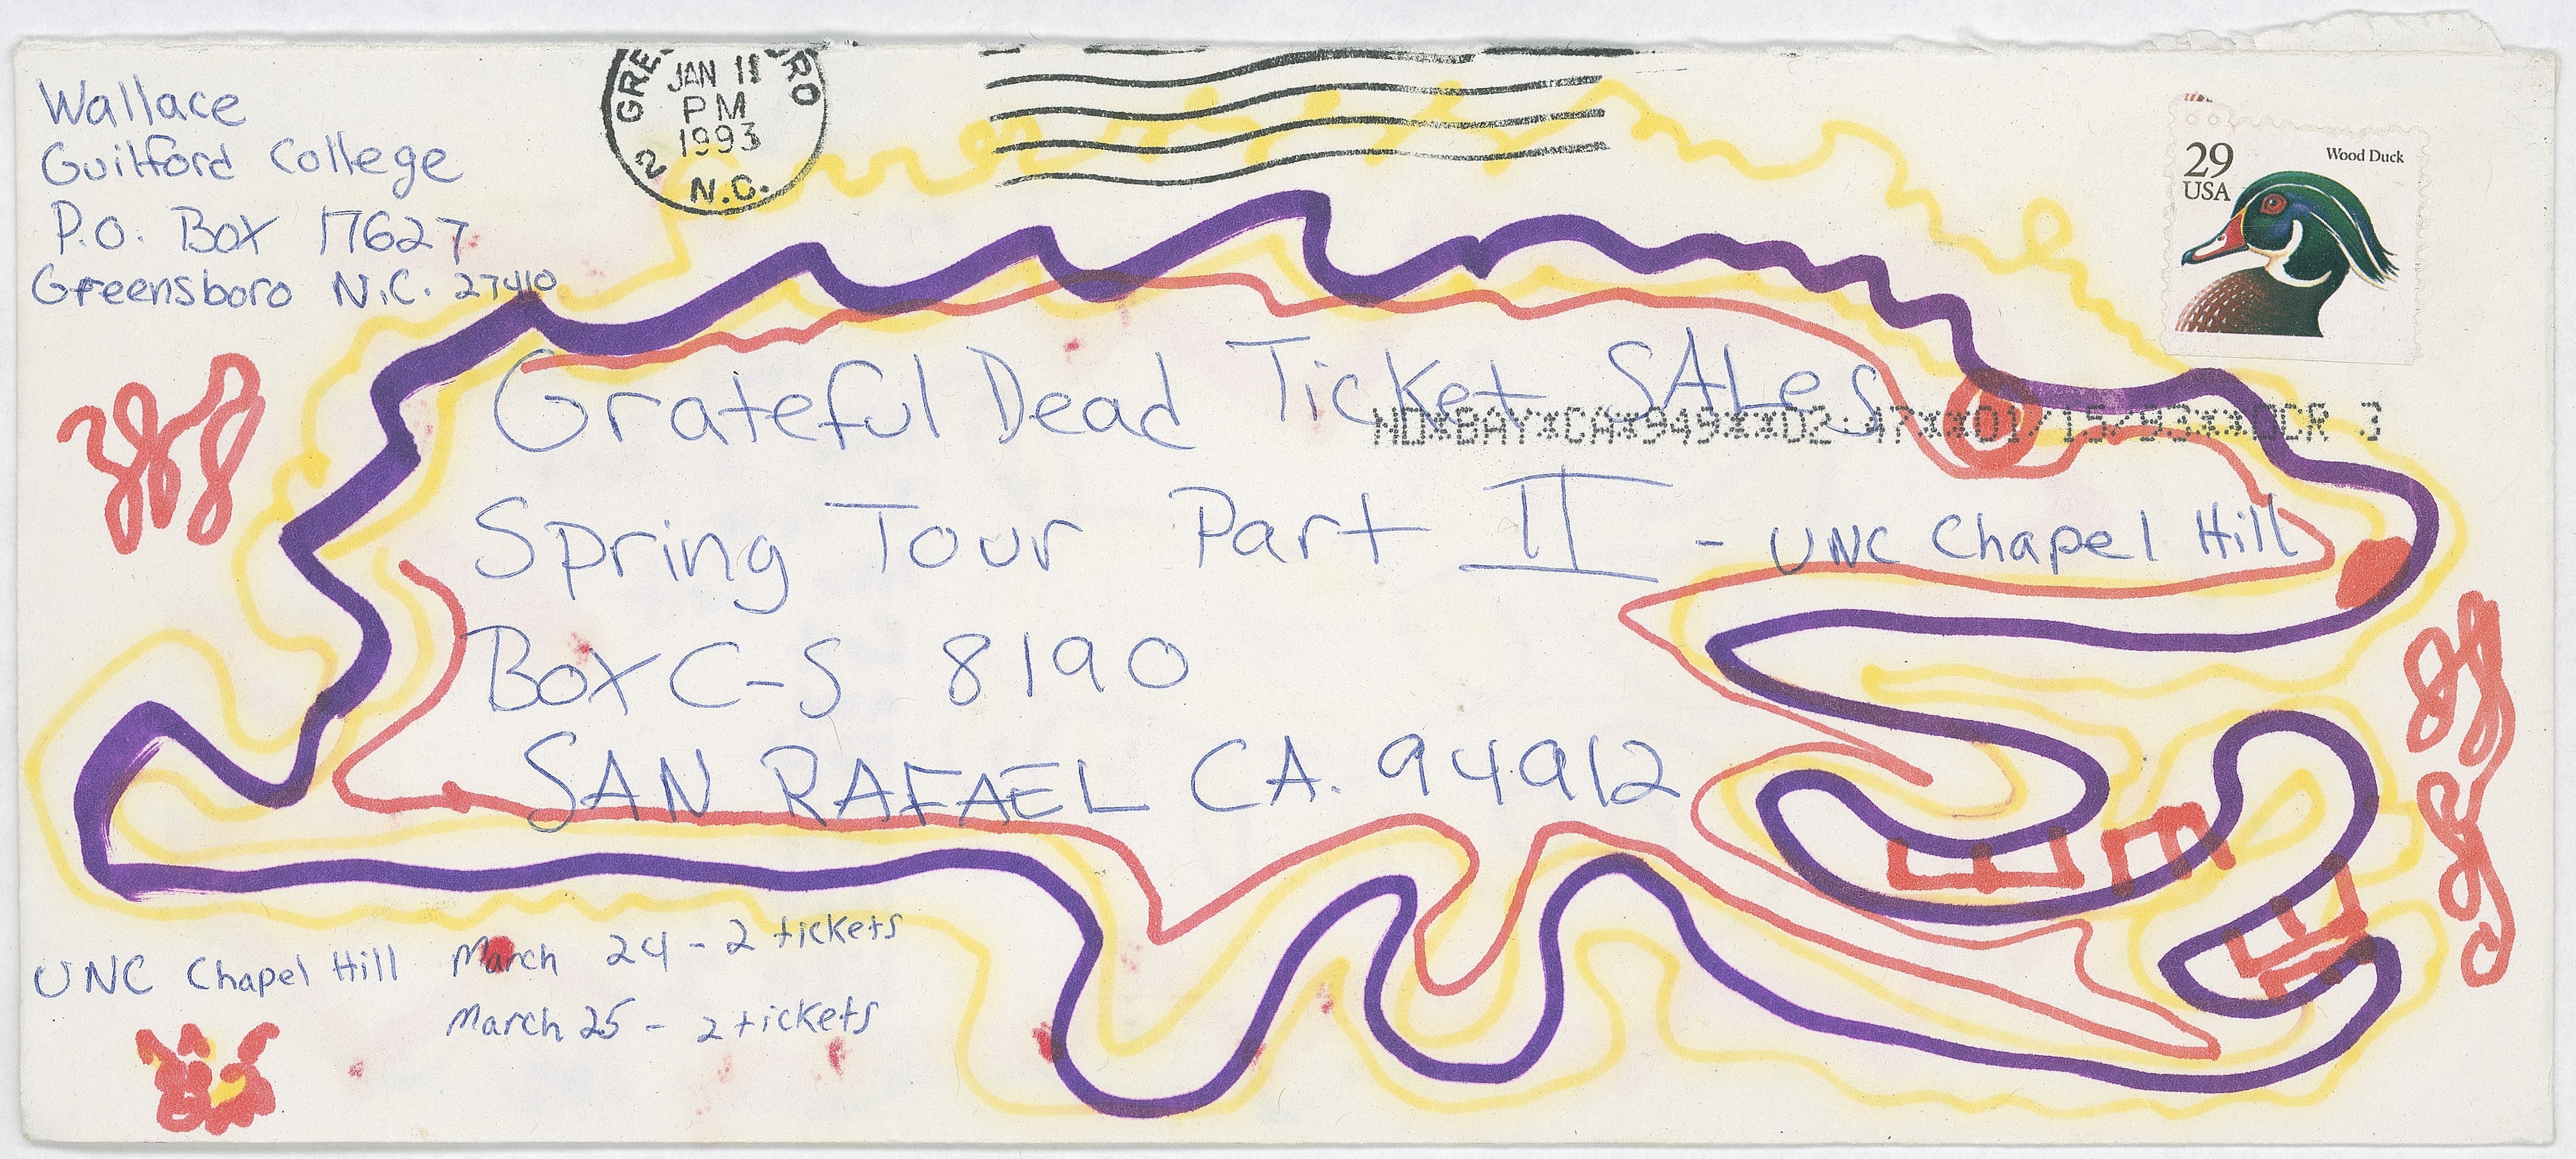 Wallace
Guilford College
P.O. Box 17627
Greensboro N.C. 27410
JAN 11
PM
1993
2 N.C.
29
USA
Wood Duck
Grateful Dead Ticket SALes
Spring Tour Part II - UNC Chapel Hill
Box C-S 8190
SAN RAFAEL CA. 94912
UNC Chapel Hill March 24 - 2 tickets
March 25 - 2 tickets